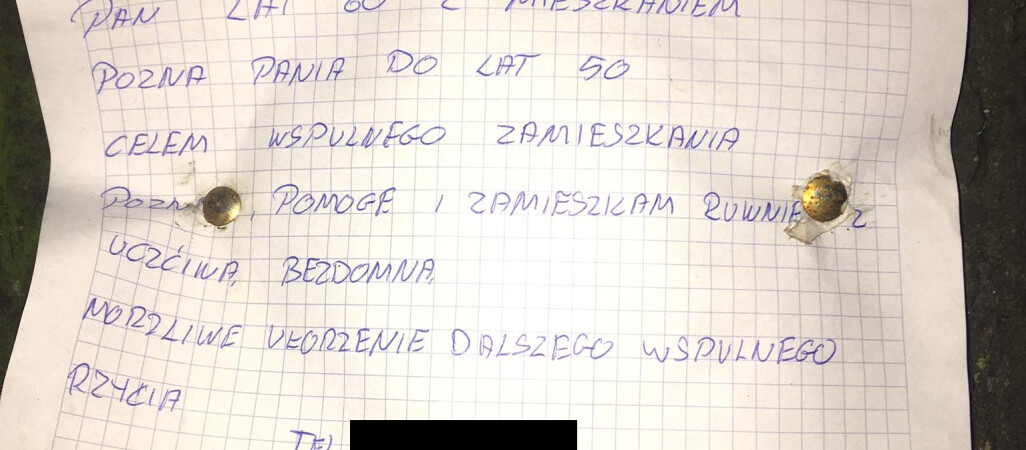 PAN LAT 60 Z MIESZKANIEM
POZNA PANIA DO LAT 50
CELEM WSPULNEGO ZAMIESZKANIA
POMOGE I ZAMIESZKAM Z
UCZĆIWĄ, BEZDOMNĄ,
MORZLIWE UŁORZENIE DALSZEGO WSPULNEGO
RZYCIA
TEL